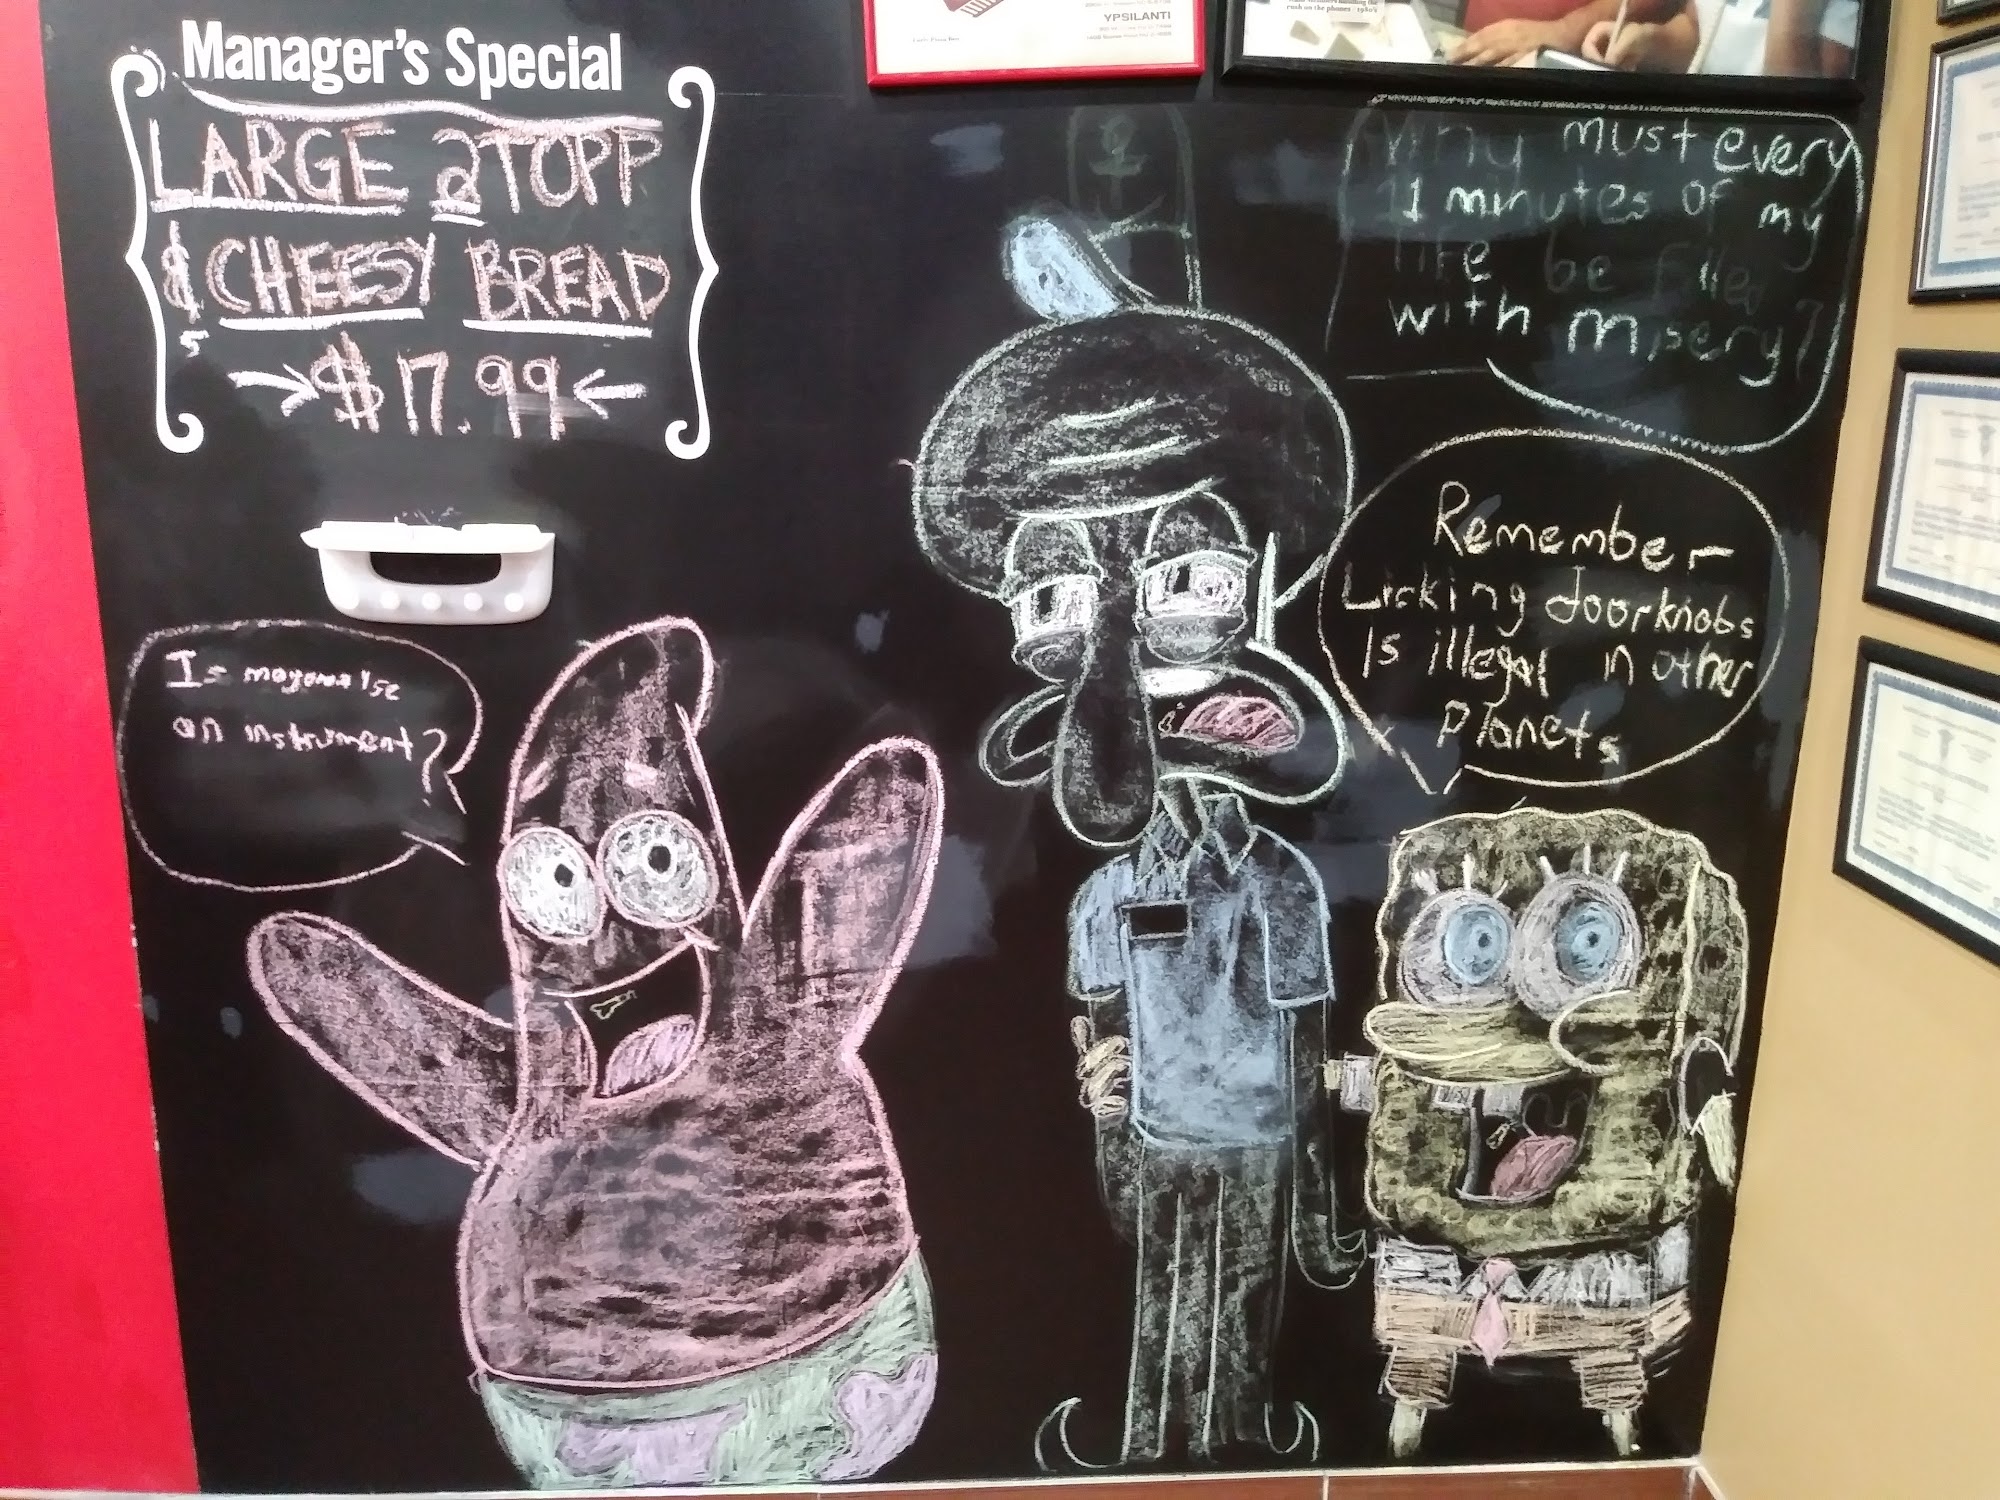 Manager's Special
LARGE 2TOPP
& CHEESY BREAD
5
$17.99
YPSILANTI
rush on the phones - 1980's
Why must every
11 minutes of my
life be filled
with misery?
Remember
Licking doorknobs
Is illegal in other
Planets
Is mayonaise
an instrument?